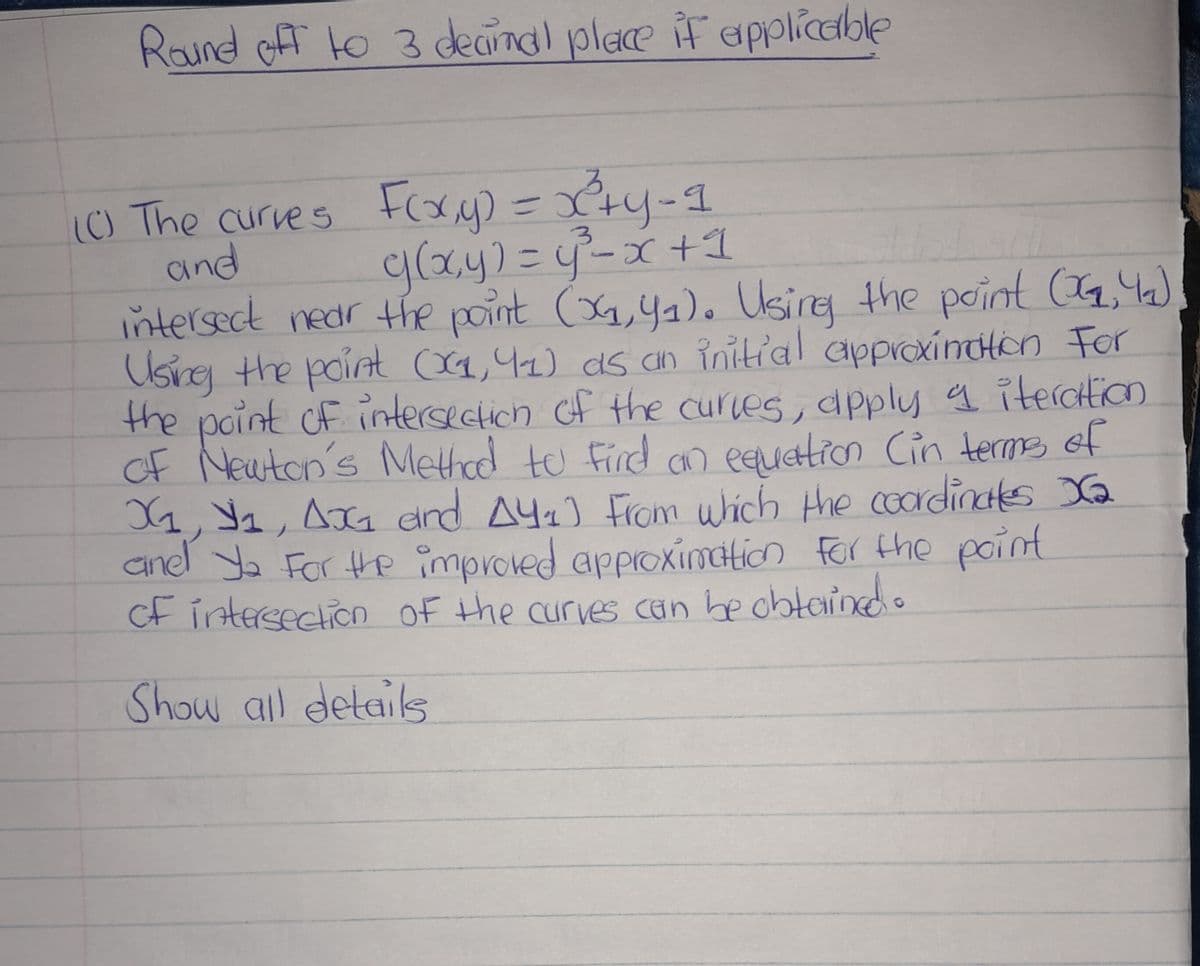 Round off to 3 decimal place if applicable
1C) The curves F(x,y) = x³+y-1
and g(x,y) = y³-x+1
intersect near the point (x₁,y₁). Using the point (x₁,y₁)
Using the point (x₁,y₁) as an initial approximation For
the point of intersection of the curves, apply 1 iteration
of Newton's Method to find an equation (in terms of
x₁, y₁, Δx₁ and Δy₁) from which the coordinates x₂
and y₂ For the improved approximation for the point
of intersection of the curves can be obtained.
Show all details